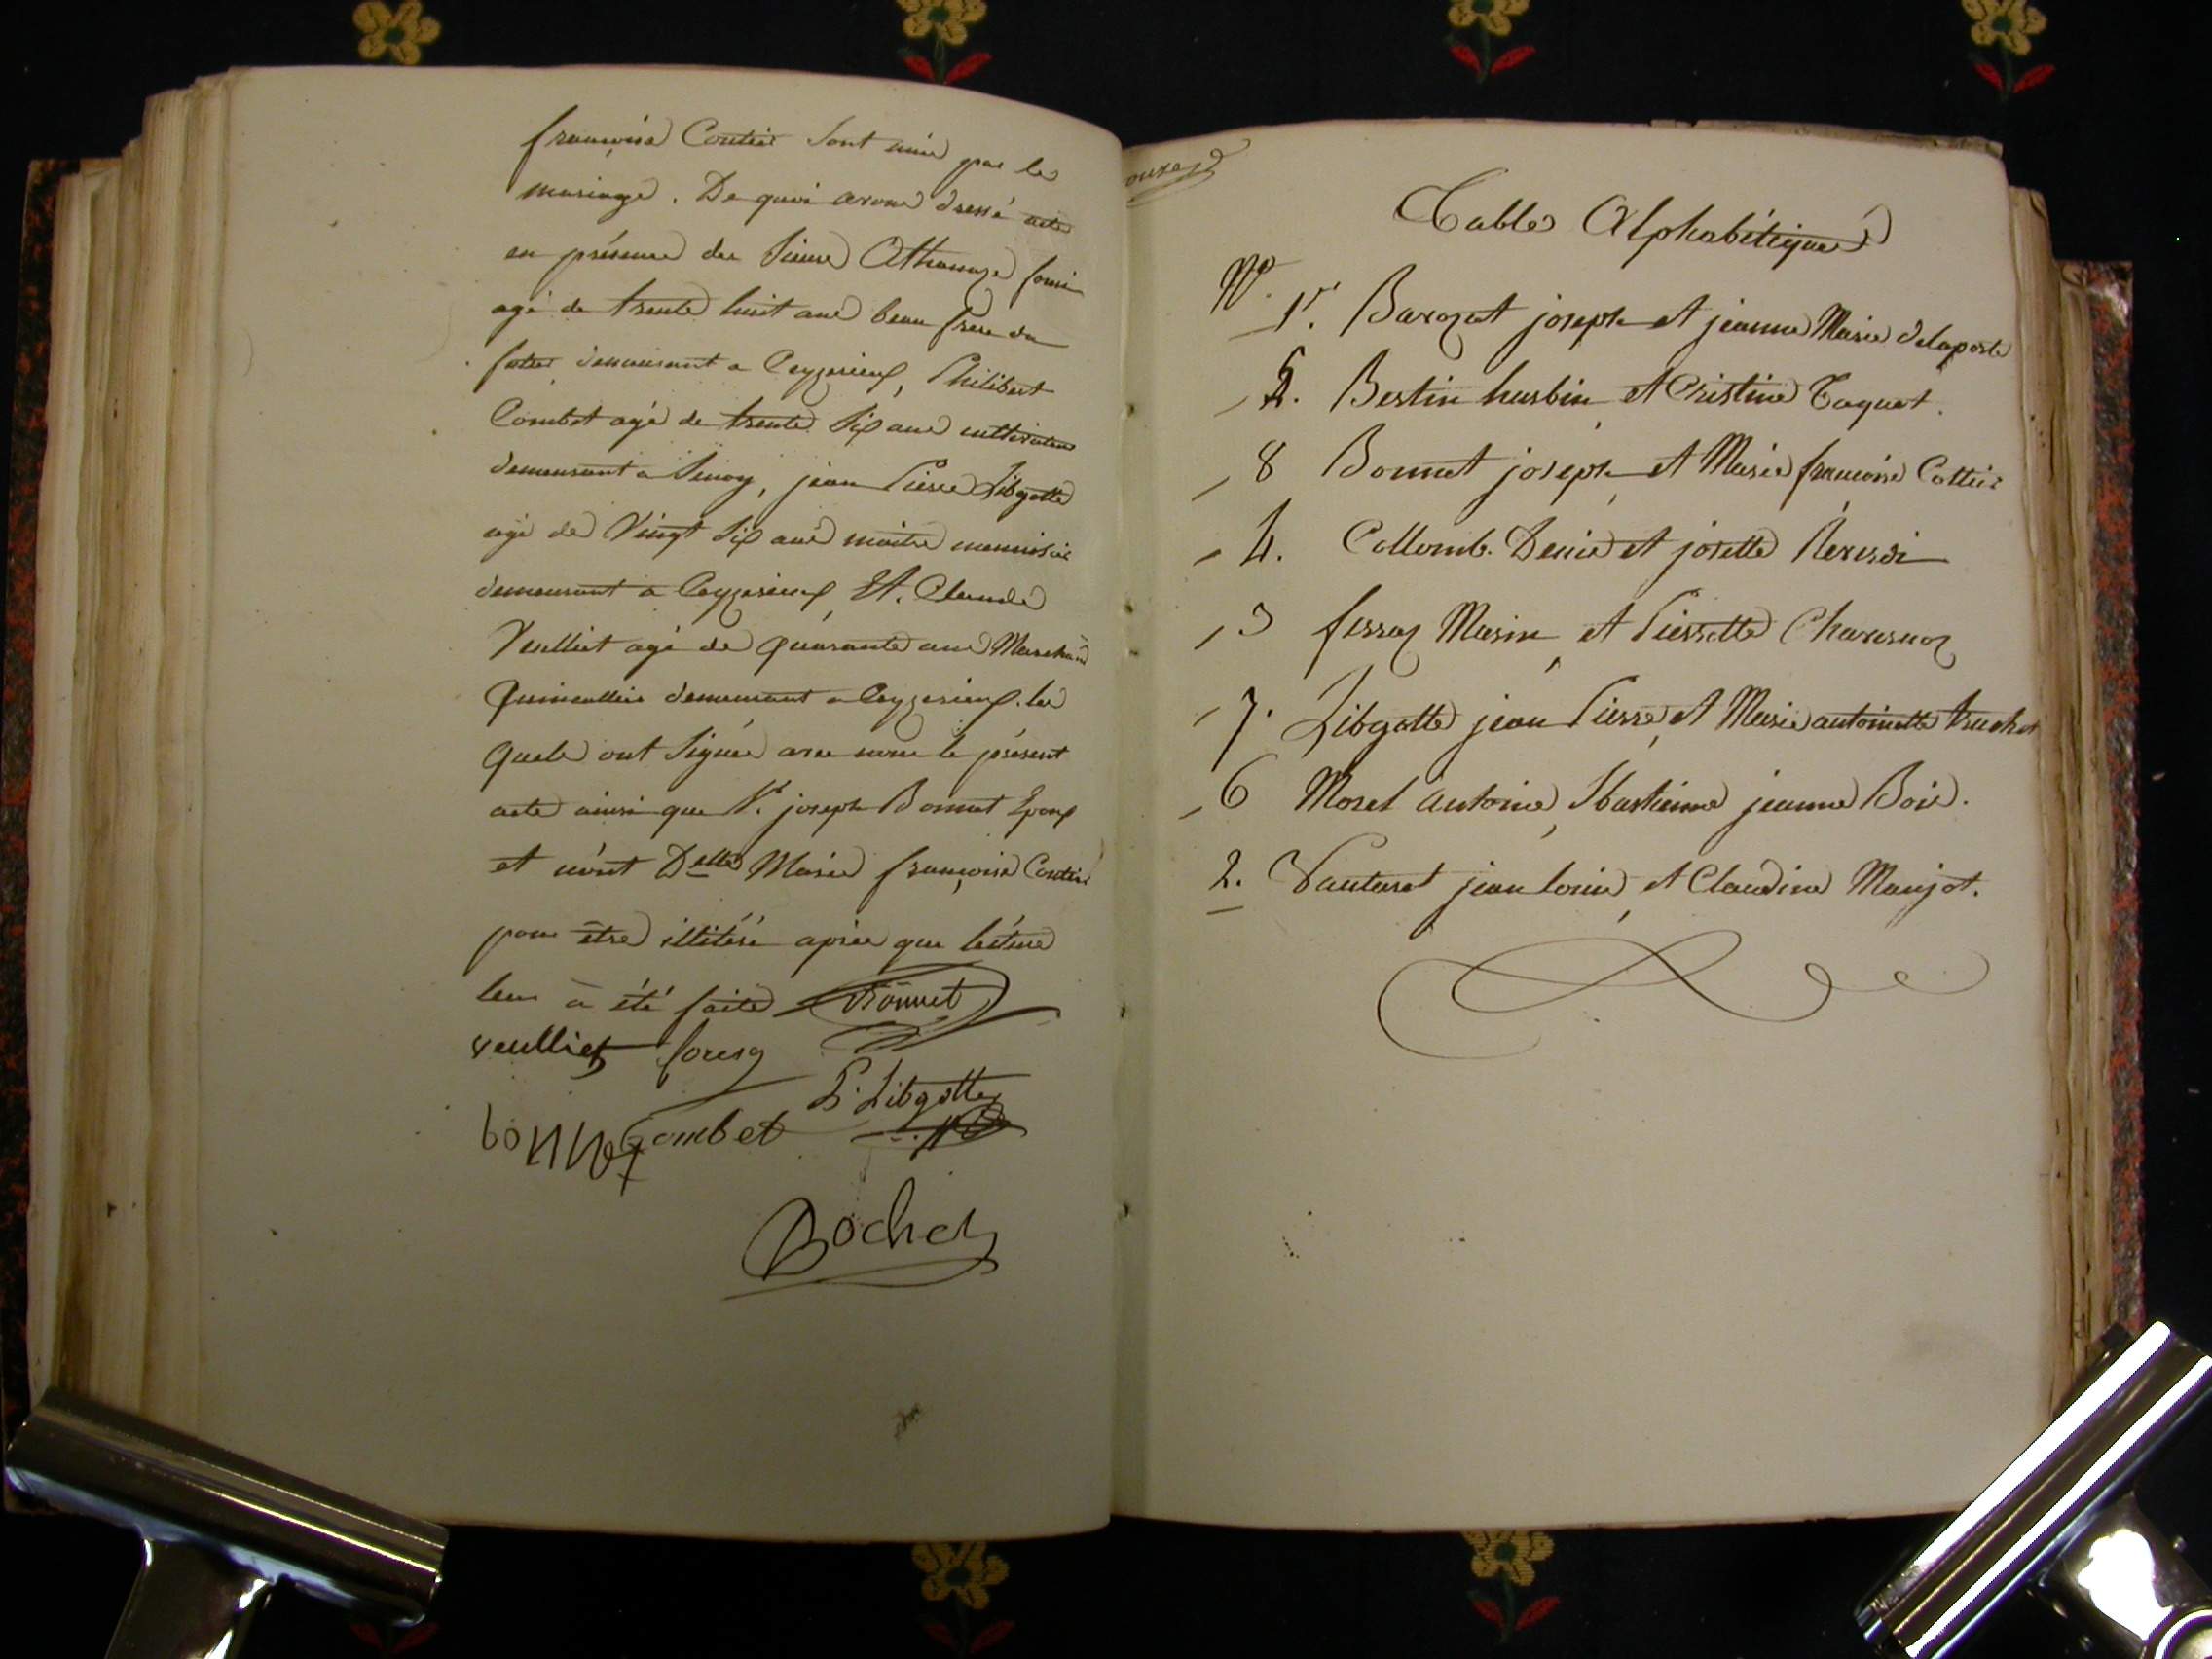 françoise Coutier sont unis par le
mariage. De quoi avons dressé acte
en présence des sieurs Athanaze
agé de trente huit ans beau frère du
demeurant a Ceyzerieux, Philibert
Combet agé de trente six ans cultivateur
demeurant a jean Pierre Libgotte
agé de Vingt six ans maitre menuisier
demeurant a Ceyzerieux, Et. Claude
Veulliet agé de quarante ans Marchand
Quincallier demeurant a Ceyzerieux. les
quels ont signés avec nous le présent
acte ainsi que Sr. joseph Bonnet Epoux
et non Delle Marie françoise Coutier
pour être illitéré après que lecture
leur à été faite Bonnet
veulliet
P. Libgotte
bonnet Combet
Bochet
onze
Table Alphabétique
No.
1r. Barozat joseph et jeanne Marie delaporte
5. Bertin hurbin et Christine Taquet.
8 Bonnet joseph et Marie françoise Cottier
4. Collomb. Denis et josette
3 ferraz Marin et Pierrette
7. Libgotte jean Pierre et Marie antoinette truchet
6 Morel antoine, Sbastienne jeanne Bois.
2. Vautaret jean louis, et Claudine Manjot.